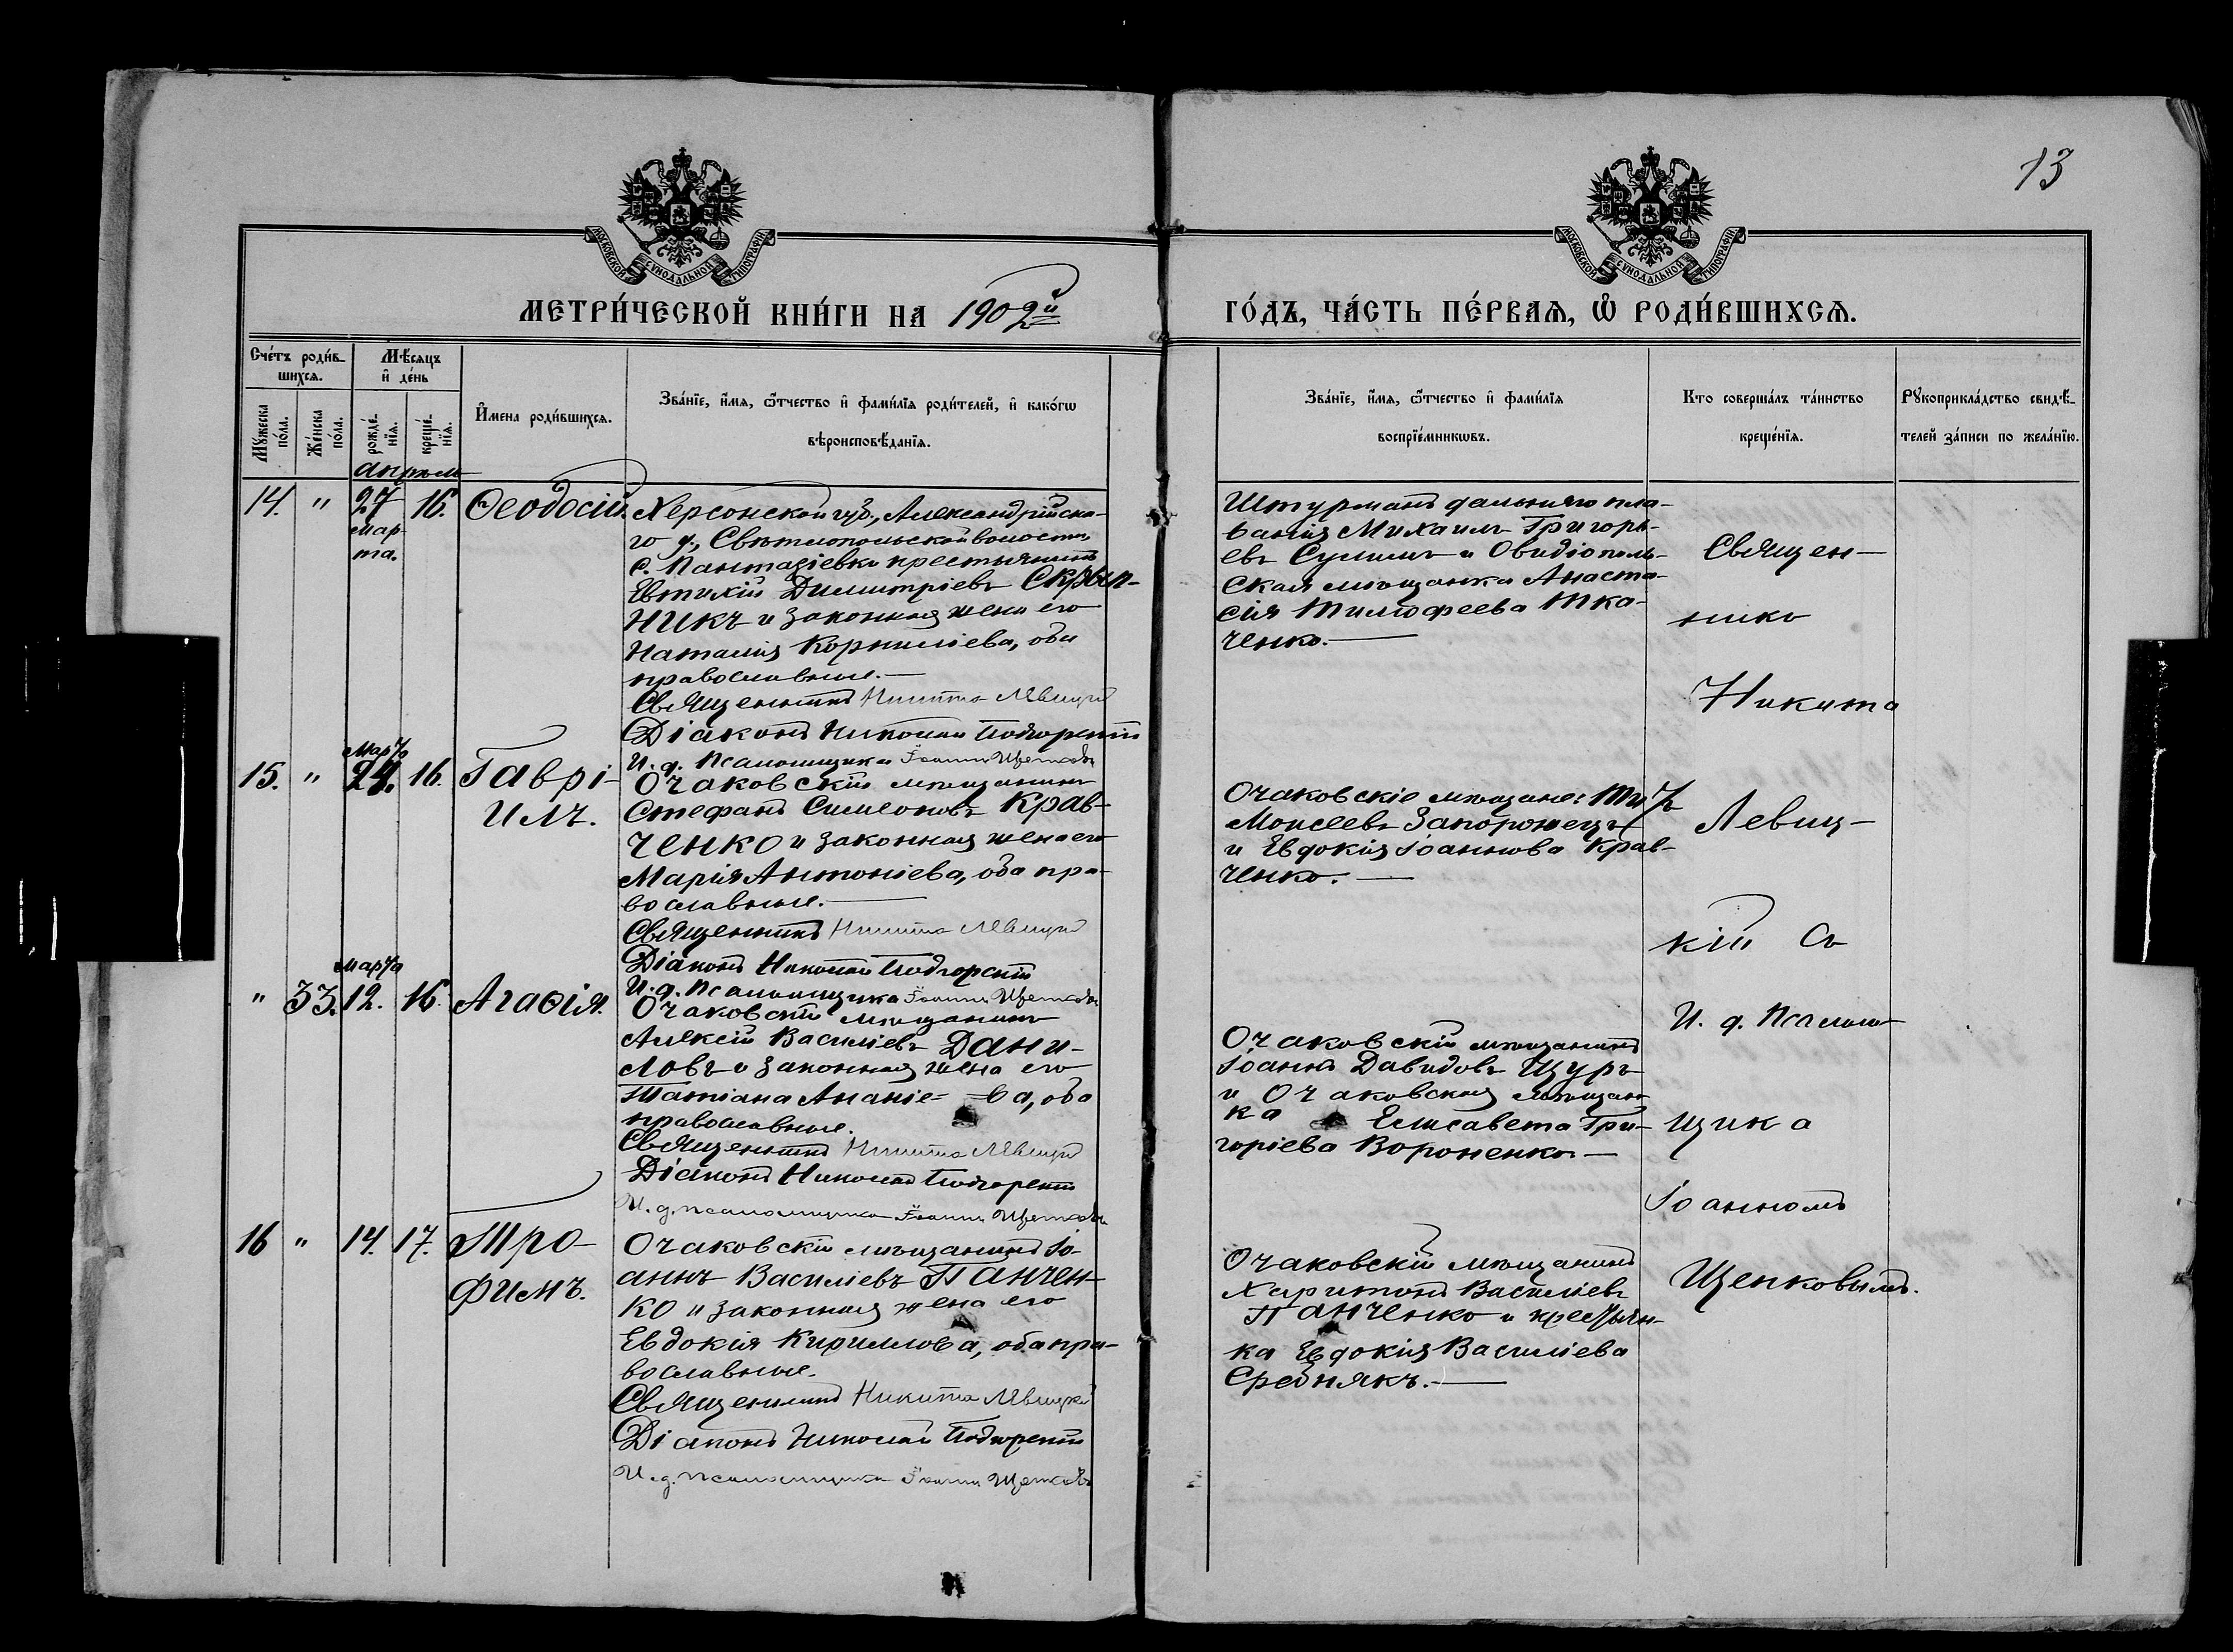 13
МОСКОВСКОЙ СѴНОДАЛЬНОЙ ТИПОГРАФІИ
МОСКОВСКОЙ СѴНОДАЛЬНОЙ ТИПОГРАФІИ
МЕТРИ́ЧЕСКОЙ КНИ́ГИ НА 1902й
ГО́ДЪ, ЧА́СТЬ ПЕ́РВАѦ, Ѽ РОДИ́ВШИХСѦ.
Сче́тъ роди́в-
шихсѧ.
Мꙋ́жеска
по́ла.
Же́нска
по́ла.
Мѣ́сѧцъ
и҆ де́нь
рожде́-
нїѧ.
креще́-
нїѧ.
И҆мена роди́вшихсѧ.
Зва́нїе, и҆́мѧ, ѻ҆́тчество и҆ фами́лїѧ роди́телей, и҆ како́гѡ
вѣроисповѣ́данїѧ.
Зва́нїе, и҆́мѧ, ѻ҆́тчество и҆ фами́лїѧ
воспрїе́мникѡвъ.
Кто соверша́лъ та́инство
креще́нїѧ.
Рꙋкоприкла́дство свидѣ́-
телей за́писи по жела́нїю.
апрѣль
14. " 27 16. Ѳеодосій.
Мар-
та.
Херсонской губ., Александрійска-
го у., Свѣтлопольской волости,
с. Пантазіевки крестьянинъ
Евтихій Димитріевъ Скрып-
никъ и законная жена его
Наталія Корниліева, оба
православные.
Священникъ Никита Левицкій
Діаконъ Николай Подгорскій
И. д. Псаломщика Іоаннъ Щепковъ
Штурманъ дальняго пла-
ванія Михаилъ Григорь-
евъ Сулимъ и Овидіополь-
ская мѣщанка Анаста-
сія Тимофеева Тка-
ченко.
Марта
15. " 24. 16. Гаврі-
илъ.
Очаковскій мѣщанинъ
Стефанъ Симеоновъ Крав-
ченко и законная жена его
Марія Антоніева, оба пра-
вославные.
Священникъ Никита Левицкій
Діаконъ Николай Подгорскій
И. д. Псаломщика Іоаннъ Щепковъ
Очаковскіе мѣщане: Титъ
Моисеевъ Запорожецъ
и Евдокія Іоаннова Крав-
ченко.
Марта
" 33. 12. 16. Агаѳія.
Очаковскій мѣщанинъ
Алексій Василіевъ Дани-
ловъ и законная жена его
Татіана Ананіе- ва, оба
православные.
Священникъ Никита Левицкій
Діаконъ Николай Подгорскій
И. д. псаломщика Іоаннъ Щепковъ
Очаковскій мѣщанинъ
Іоаннъ Давидовъ Щуръ
и Очаковская мѣщан-
ка Елисавета Гри-
горіева Вороненко.
16 " 14. 17. Тро-
фимъ.
Очаковскій мѣщанинъ Іо-
аннъ Василіевъ Панчен-
ко и законная жена его
Евдокія Кириллова, оба пра-
вославные.
Священникъ Никита Левицкій
Діаконъ Николай Подгорскій
И. д. псаломщика Іоаннъ Щепковъ
Очаковскій мѣщанинъ
Харитонъ Василіевъ
Панченко и крестьян-
ка Евдокія Василіева
Среднякъ.
Священ-
никъ
Никита
Левиц-
кій съ
И. д. Псалом-
щика
Іоанномъ
Щепковымъ.